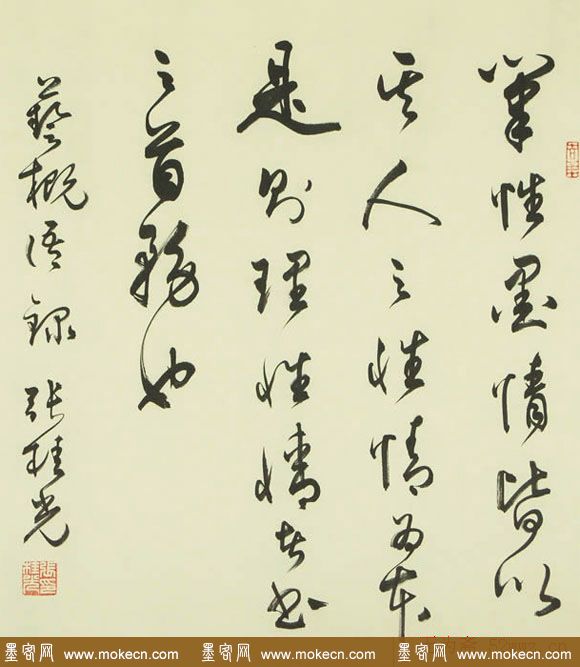 筆性墨情皆以
其人之性情為本
是則理性情者書
之首務也
藝概語錄 張桂光
墨客网 www.mokecn.com 墨客网 www.mokecn.com 墨客网 www.mokecn.com